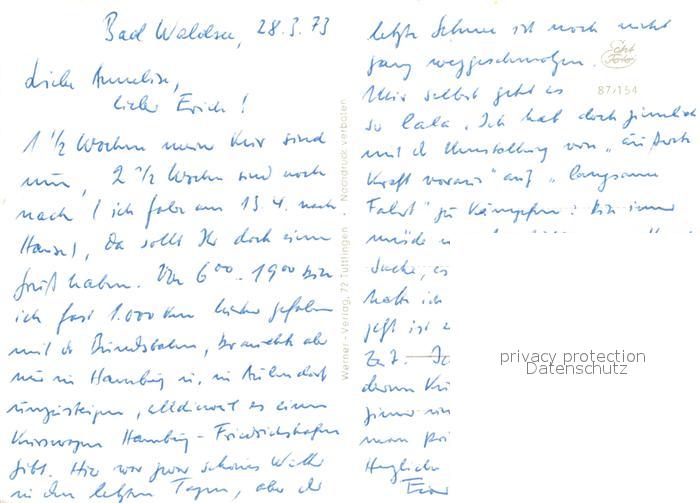 Bad Waldsee, 28.3.73
Liebe Annelise,
lieber Erich!
1 1/2 Wochen meiner Kur sind
um, 2 1/2 Wochen sind noch
nach (ich fahre am 13.4. nach
Hause), da sollt Ihr doch einen
Gruß haben. Von 6⁰⁰ - 19⁰⁰ bin
ich fast 1.000 km hierher gefahren
mit der Bundesbahn, brauchte aber
nur in Hamburg u. in Aulendorf
umzusteigen, alldieweil es einen
Kurswagen Hamburg - Friedrichshafen
gibt. Hier war zwar schönes Wetter
in den letzten Tagen, aber der
letzte Schnee ist noch nicht
ganz weggeschmolzen.
Mir selbst geht es
so lala. Ich hab doch ziemlich
mit der Umstellung von „äußerste
Kraft voraus" auf „langsame
Fahrt" zu kämpfen: bin immer
müde
Sache, es
habe ich
jetzt ist
Zeit.
deren
man
Herzliche
Werner-Verlag, 72 Tuttlingen · Nachdruck verboten
Echt
Foto
87/154
privacy protection
Datenschutz